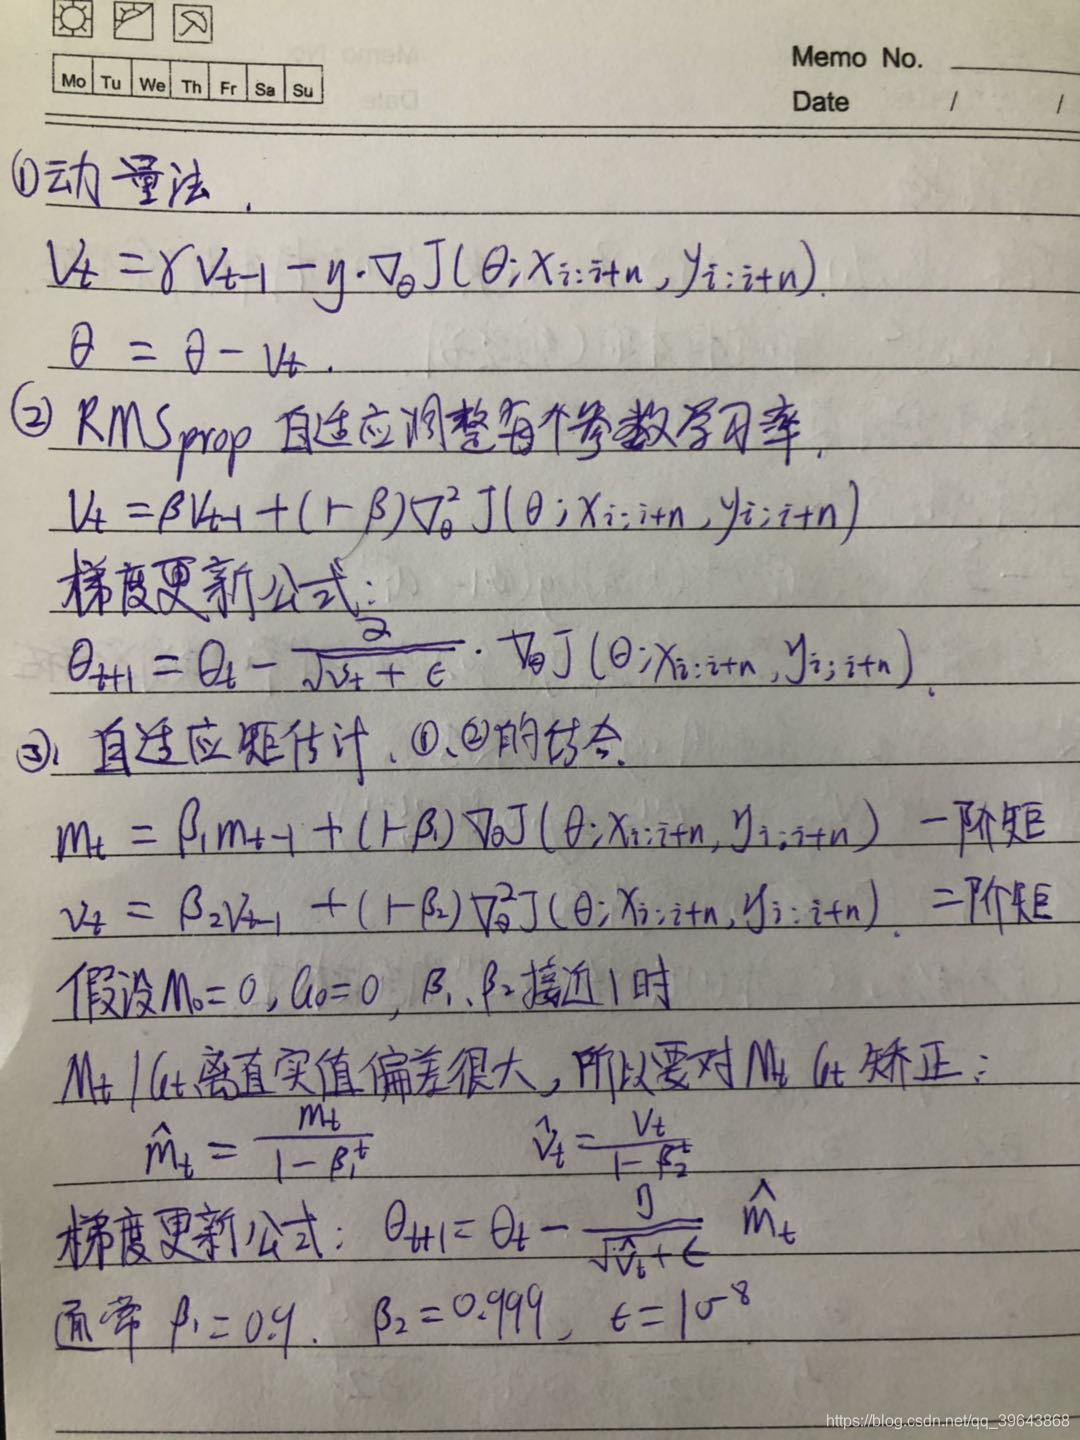 Mo Tu We Th Fr Sa Su
Memo No.
Date / /
①动量法.
Vt = γVt-1 - η·∇θJ(θ;xi:i+n,yi:i+n).
θ = θ - Vt.
② RMSprop 自适应调整每个参数学习率.
Vt = βVt-1 + (1-β)∇θ²J(θ;xi:i+n,yi:i+n)
梯度更新公式:
θt+1 = θt - α/√(vt+ϵ) · ∇θJ(θ;xi:i+n,yi:i+n).
③. 自适应矩估计、①、②的结合.
mt = β1mt-1 + (1-β1)∇θJ(θ;xi:i+n,yi:i+n) 一阶矩
vt = β2Vt-1 + (1-β2)∇θ²J(θ;xi:i+n,yi:i+n). 二阶矩
假设M0=0,G0=0,β1、β2接近1时
Mt/Gt离真实值偏差很大,所以要对Mt Gt 矫正:
m̂t = mt/(1-β1^t) v̂t = Vt/(1-β2^t)
梯度更新公式: θt+1 = θt - η/√(v̂t+ϵ) m̂t
通常 β1=0.9. β2=0.999, ϵ=10^-8
https://blog.csdn.net/qq_39643868